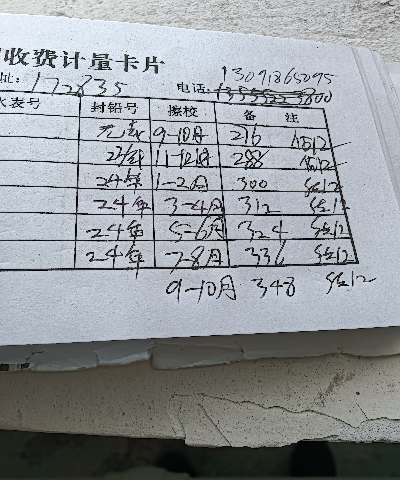 收费计量卡片
址: 172835 电话: 13091865095
水表号 封铅号 擦校 备注
9-10月 276 估12
23年 11-12月 288 估12
24年 1-2月 300 估12
24年 3-4月 312 估12
24年 5-6月 324 估12
24年 7-8月 336 估12
9-10月 348 估12